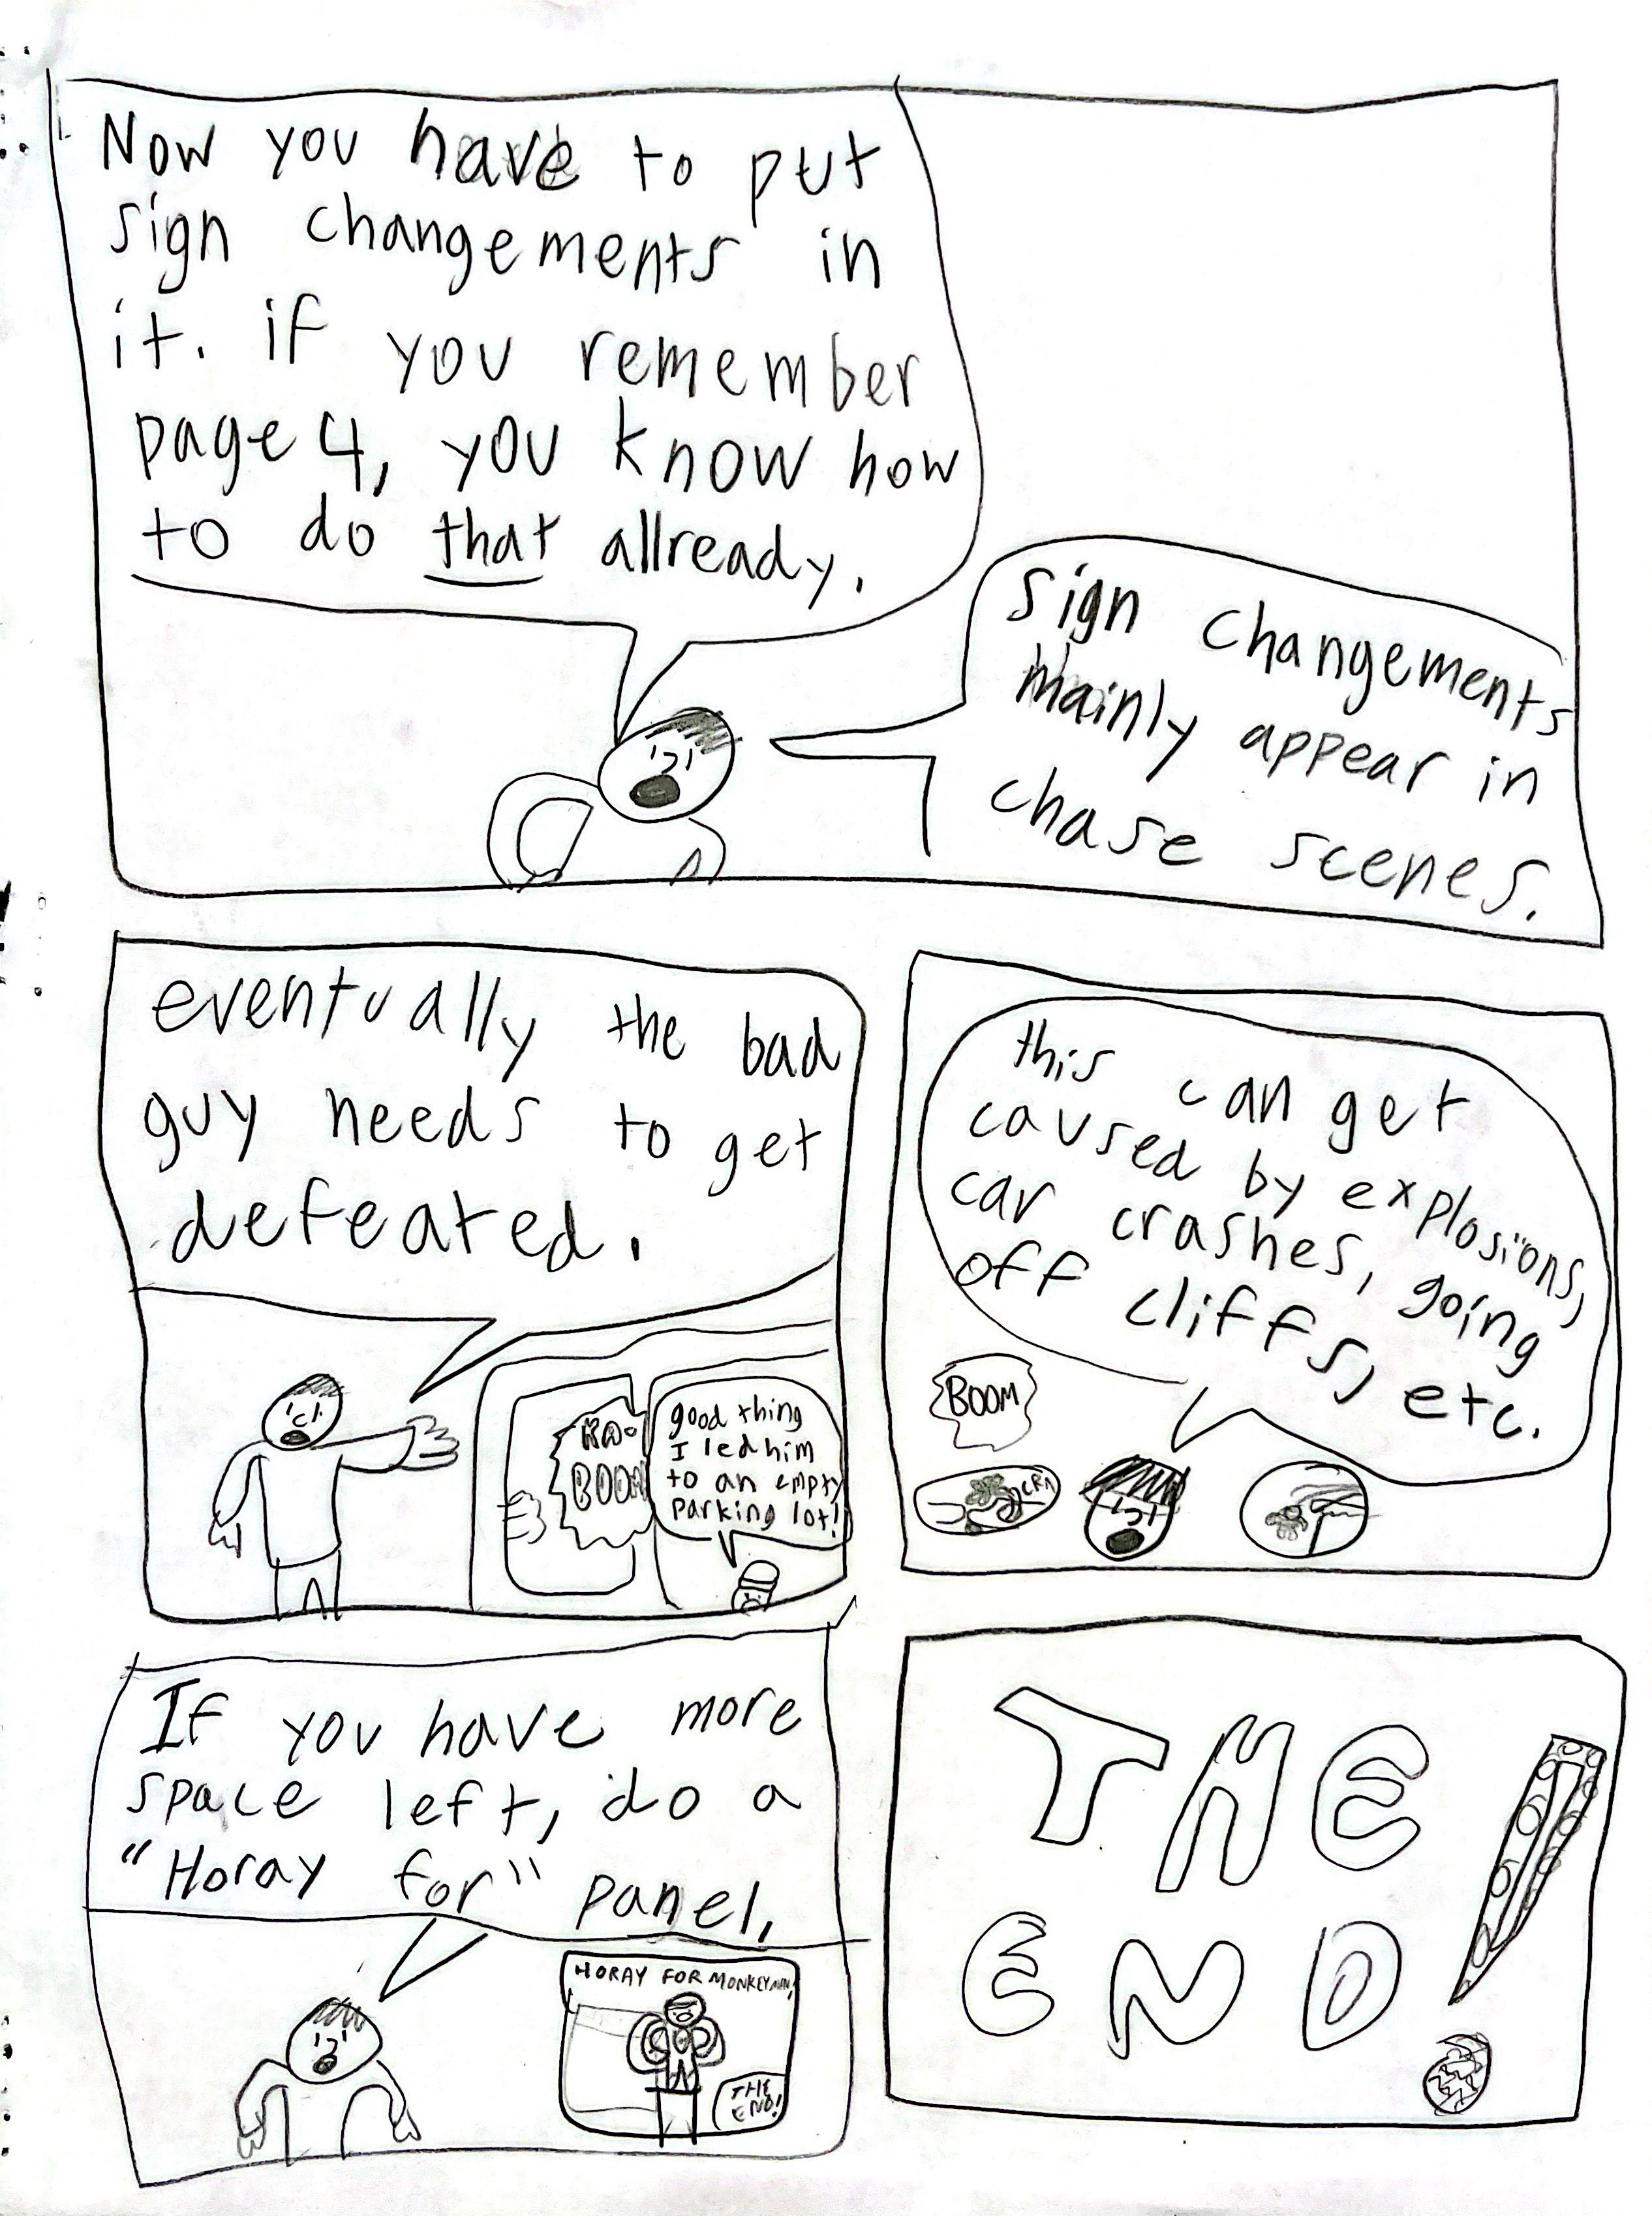 Now you have to put
sign changements in
it. if you remember
page 4, you know how
to do that allready.
sign changements
mainly appear in
chase scenes.
eventually the bad
guy needs to get
defeated.
KA-
BOOM
good thing
I led him
to an empty
parking lot!
this can get
caused by explosions,
car crashes, going
off cliffs, etc.
BOOM
CRA
If you have more
space left, do a
"Horay for" panel.
HORAY FOR MONKEYMAN!
THE
END!
THE
END!